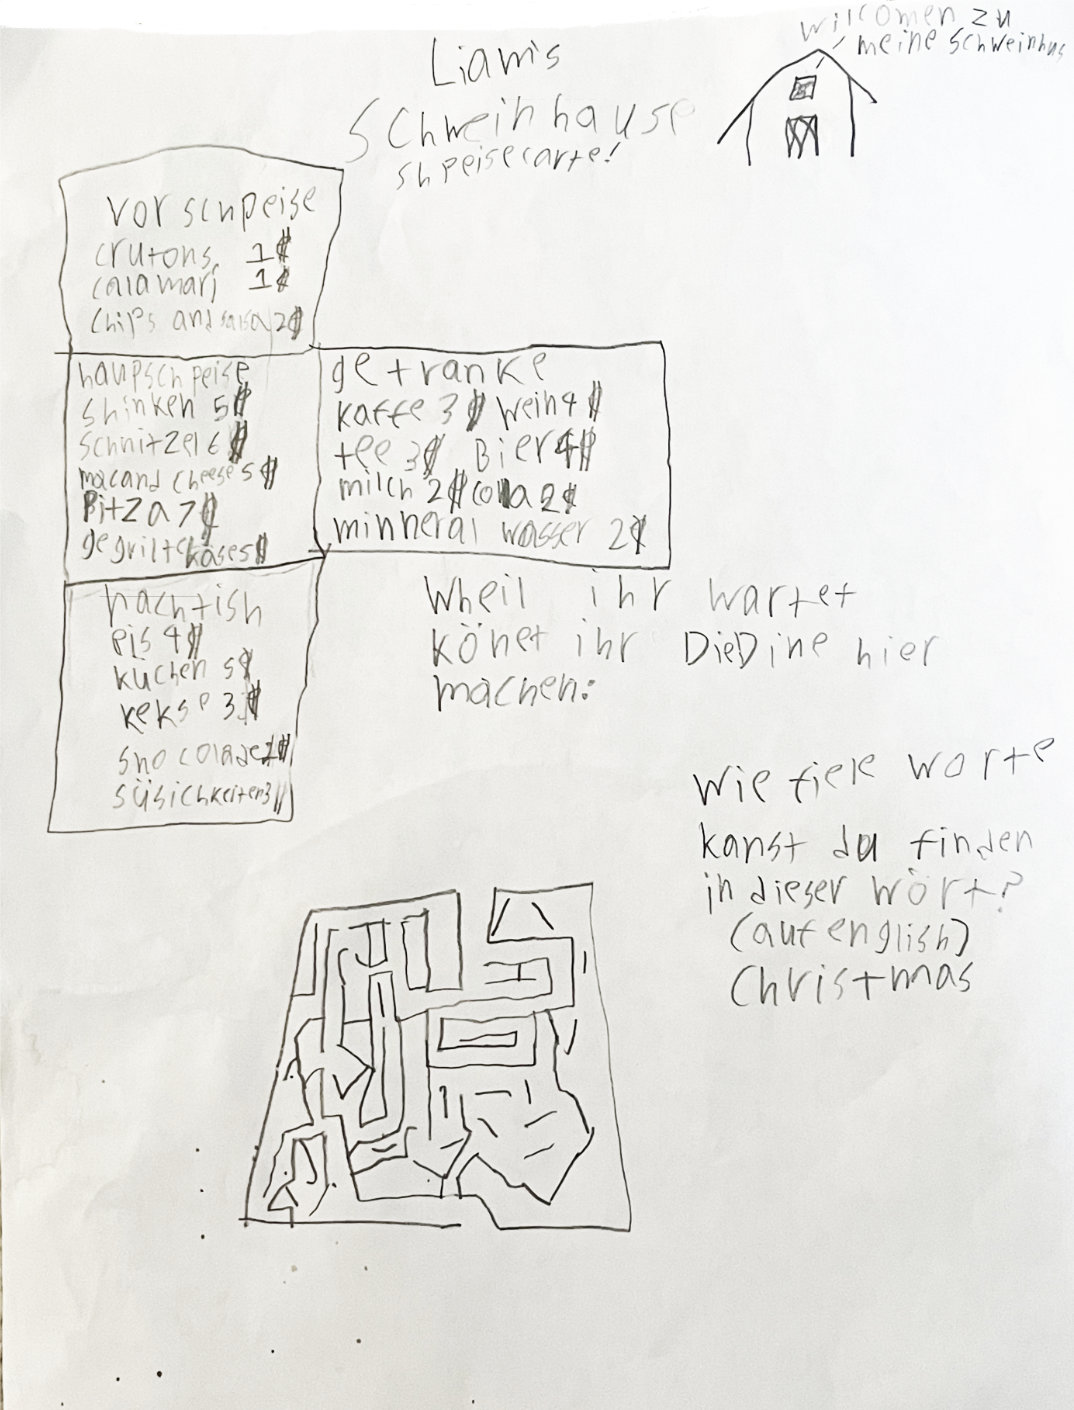 wilcomen zu
meine schweinhus
Liam's
Schweinhause
shpeisecarte!
vorschpeise
crutons 1$
calamari 1$
chips and salsa 2$
haupschpeise
shinken 5$
schnitzel 6$
mac and cheese 5$
Pitza 7$
gegrilte käse 5$
getranke
kaffe 3$ wein 4$
tee 3$ Bier 4$
milch 2$ cola 2$
minneral wasser 2$
nachtish
eis 4$
küchen 5$
kekse 3$
shocolade 2$
süsichkeiten 3$
Wheil ihr wartet
könet ihr Die Dine hier
machen:
Wie fiele worte
kanst du finden
in dieser wört?
(auf english)
Christmas